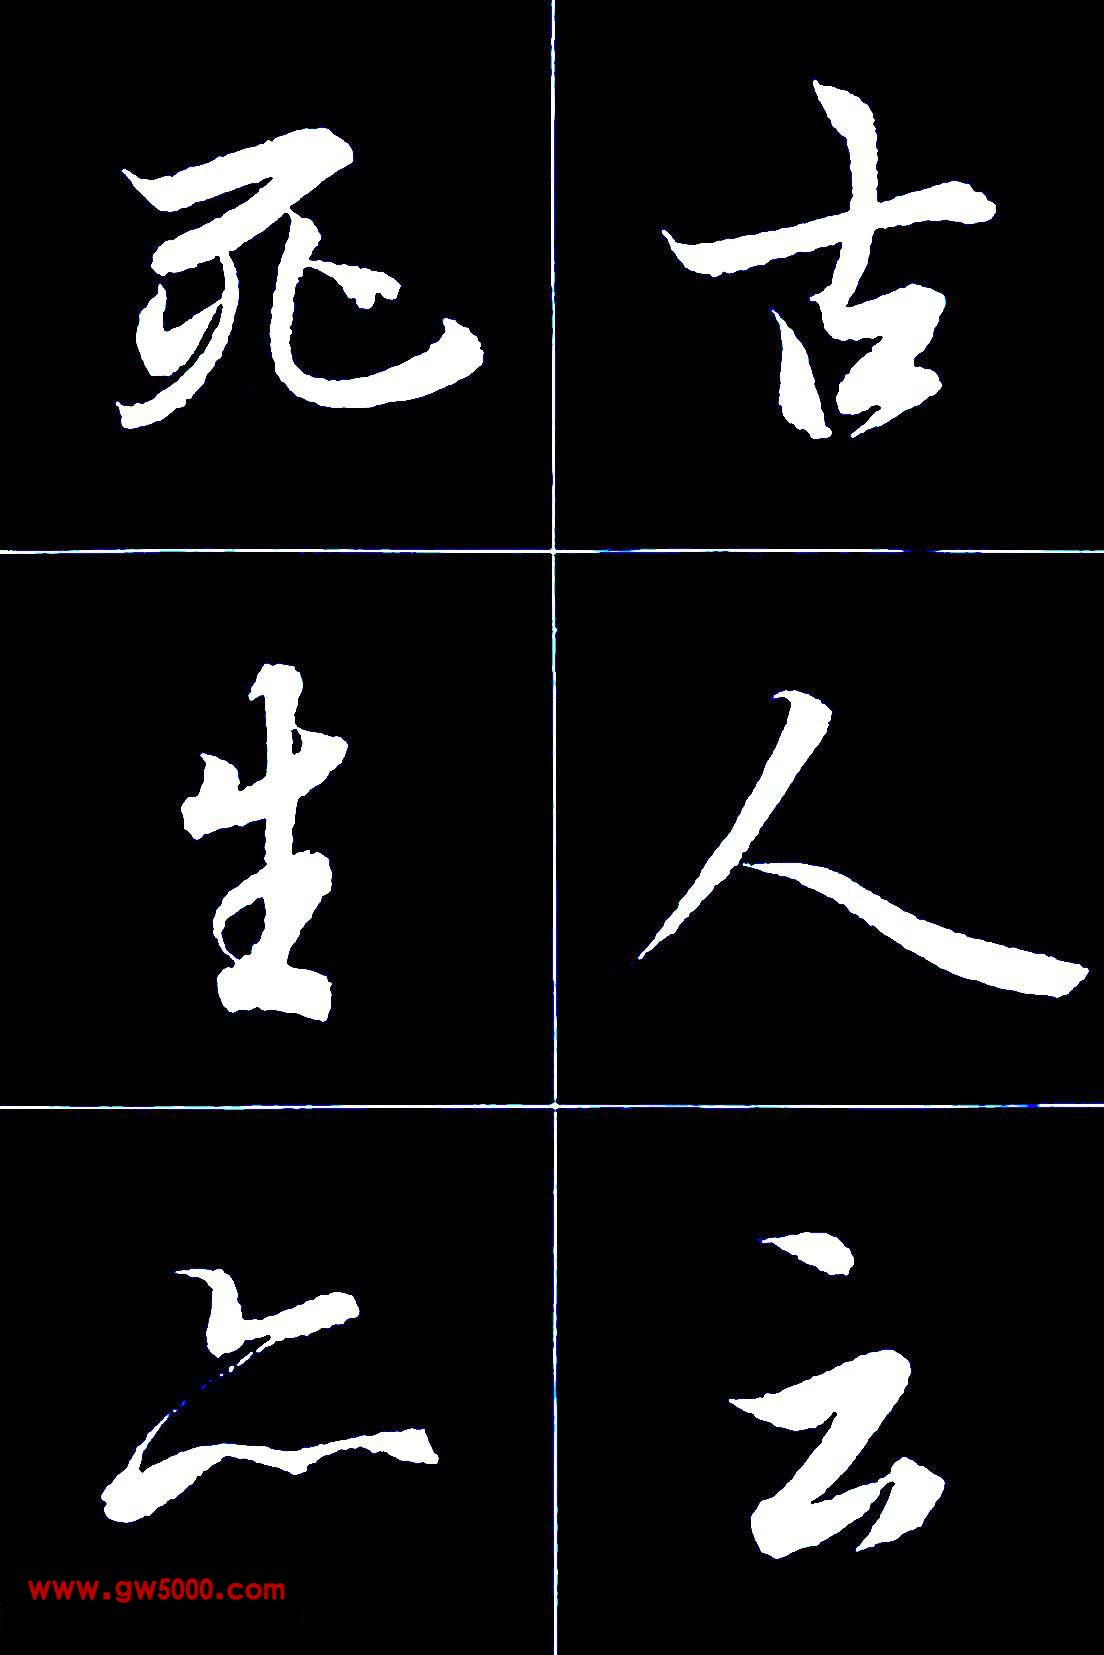 古人云
死生亦
www.gw5000.com